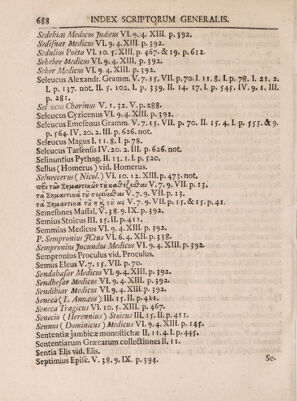 688 INDEX SCRIPTORUM GENERALIS.
Sedekias Medicus Judæus VI. 9. 4. XIII. p. 392.
Sedifnar Medicus VI. 9. 4. XIII. p. 392.
Sedulius Poëta VI. 10. 5. XIII. p. 467. & 19. p. 612.
Sekeber Medicus VI. 9. 4. XIII. p. 392.
Seher Medicus VI. 9. 4. XIII. p. 392.
Seleucus Alexandr. Gramm. V. 7. 15. VII. p. 70. I. 11. 8. I. p. 78. I. 21. 2.
I. p. 137. not. II. 5. 102. I. p. 339. II. 14. 17. I. p. 545. IV. 9. 1. III.
p. 281.
Seleucus Chorinus V. 1. 32. V. p. 288.
Seleucus Cyzicenus VI. 9. 4. XIII. p. 392.
Seleucus Emesenus Gramm. V. 7. 15. VII. p. 70. II. 15. 4. I. p. 555. & 9.
p. 564. IV. 20. 2. III. p. 626. not.
Seleucus Magus I. 11. 8. I. p. 78.
Seleucus Tarsensis IV. 20. 2. III. p. 626. not.
Selinuntius Pythag. II. 13. 1. I. p. 520.
Sellus (Homerus) vid. Homerus.
Selneccerus (Nicol.) VI. 10. 12. XIII. p. 473. not.
V. 7. 9. VII. p. 13.
V. 7. 9. VII. p. 13.
V. 7. 9. VII. p. 15. & 15. p. 41.
Semesones Massal. V. 38. 9. IX. p. 392.
Semius Stoicus III. 15. II. p. 411.
Semmias Medicus VI. 9. 4. XIII. p. 392.
P. Sempronius JCtus VI. 6. 4. XII. p. 338.
Sempronius Jucundus Medicus VI. 9. 4. XIII. p. 392.
Sempronius Proculus vid. Proculus.
Semus Eleus V. 7. 15. VII. p. 70.
Sendabasar Medicus VI. 9. 4. XIII. p. 392.
Sendhesar Medicus VI. 9. 4. XIII. p. 392.
Sendibhar Medicus VI. 9. 4. XIII. p. 392.
Seneca (L. Annæus) III. 15. II. p. 411.
Seneca Tragicus VI. 10. 5. XIII. p. 467.
Senecio (Herennius) Stoicus III. 15. II. p. 411.
Sennus (Dominicus) Medicus VI. 9. 4. XIII. p. 145.
Sententiæ jambicæ monostichæ II. 11. 4. I. p. 445.
Sententiarum Græcarum collectiones II. 11.
Sentia Elis vid. Elis.
Septimius Episc. V. 38. 9. IX. p. 394.
Se-